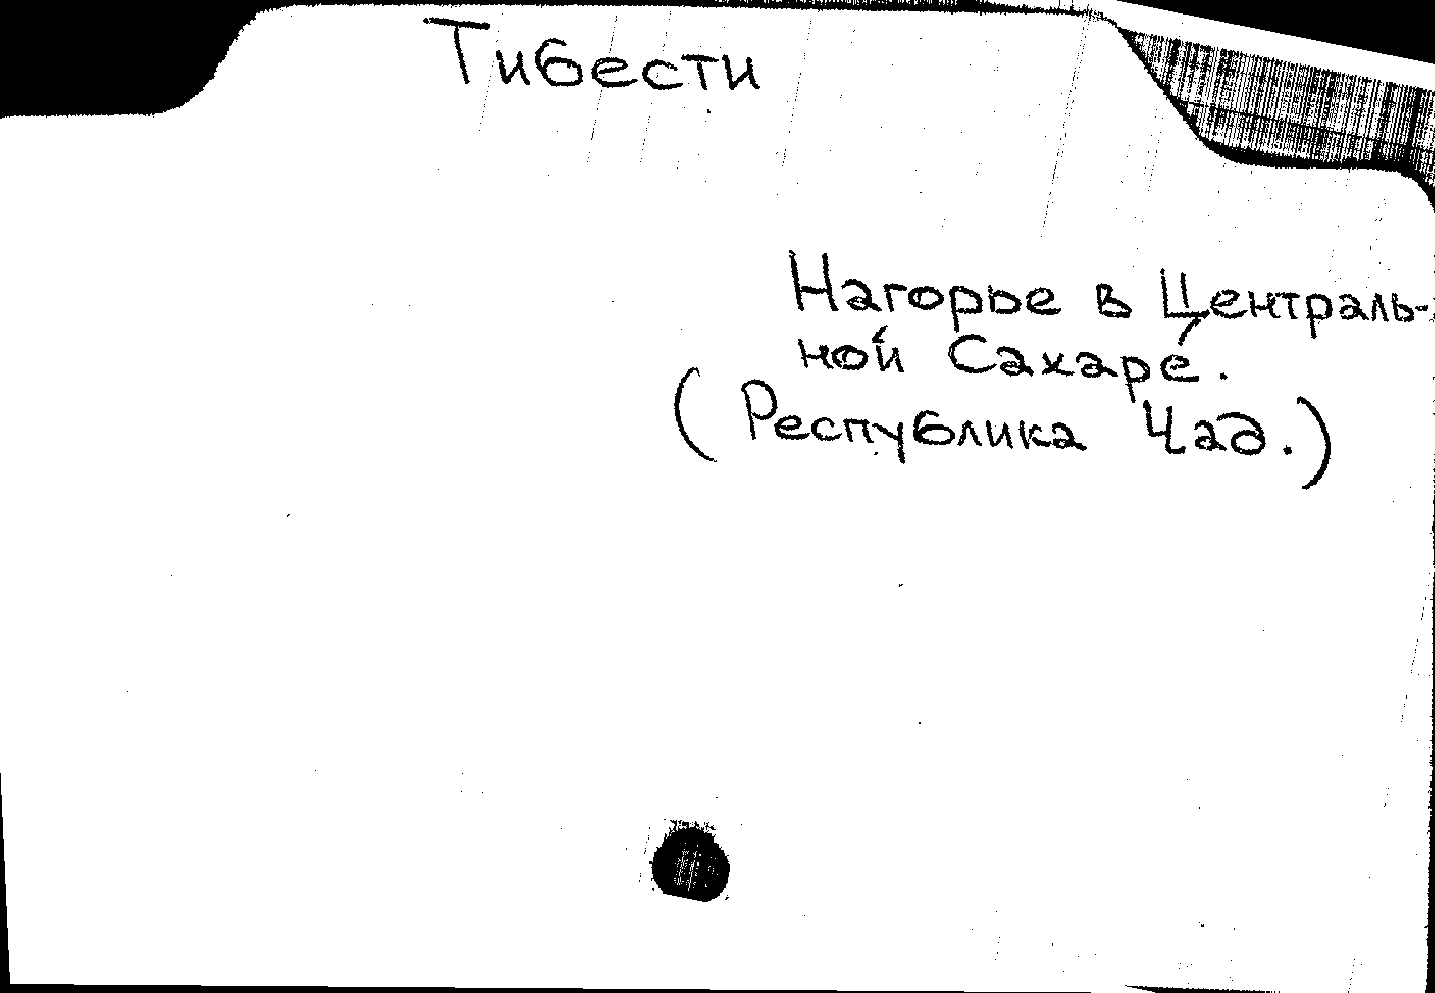 Тибести
Нагорье в Централь-
ной Сахаре.
(Республика Чад.)